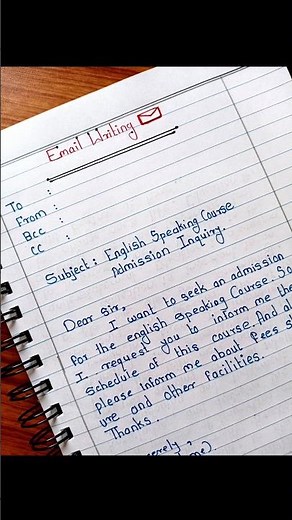 Email Writing
To :
From :
Bcc :
CC :
Subject : English Speaking Course
Admission Inquiry.
Dear Sir,
I want to seek an admission
for the english speaking Course. So
I request you to inform me the
schedule of this course. And al
please inform me about fees st
ure and other facilities.
Thanks.